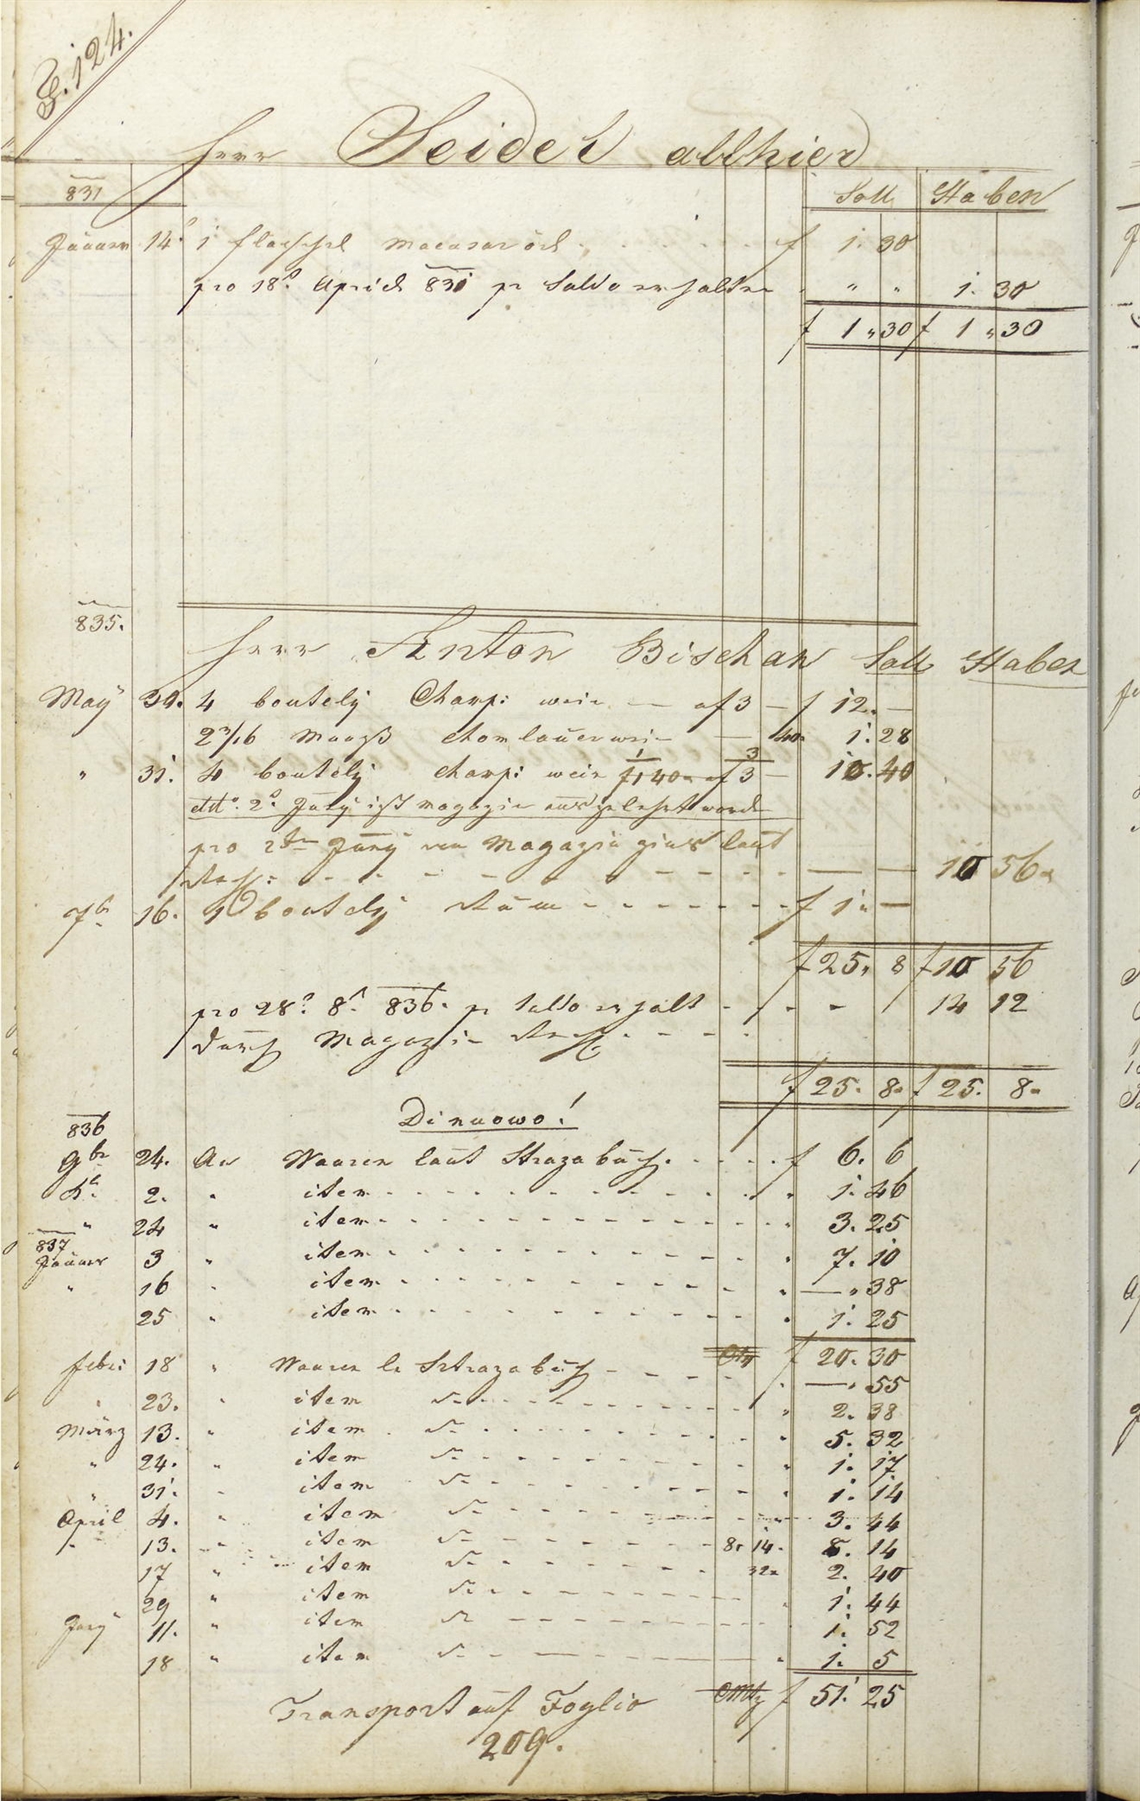 124.
Herr Seidel allhier
831 Soll Haben
Januar 14. 1 flaschl macasar öel f 1. 30
pro 18. April 831 pr Saldo erhalten " " 1. 30
f 1 " 30 f 1 " 30
835.
Herr Anton Bischan Soll Haben
May 30. 4 boutely Champ: wein — af 3 — f 12. —
2 3/16 Maaß wein — 40 1. 28
" 31. 4 boutely champ: wein f 1 40 3 — 10. 40
2. Juny ist magazin worden
pro 2ten Juny von Magazin zins laut
— — 10 56
7b 16. 1 boutely Rum f 1. —
f 25. 8 f 10 56
pro 28. 8b 836. pr Saldo erhalt - 14 12
durch Magazin
f 25. 8 f 25. 8
Di nuowo!
836
9br 24. An Waaren laut Straza buch f 6. 6
2. " item 1. 46
" 24 " item 3. 25
837
Januar 3 " item 7. 10
" 16 " item — " 38
25 " item 1. 25
f 20. 30
febr: 18 " Waaren Straza buch — " 55
23. " item 2. 38
März 13. " item 5. 32
" 24. " item 1. 17
31. " item 1. 14
April 4. " item 3. 44
" 13. " item 8. 14. 8. 14
17 " item 32 2. 40
29 " item 1. 44
Juny 11. " item 1. 52
18 " item 1. 5
Transport auf Foglio f 51. 25
209.